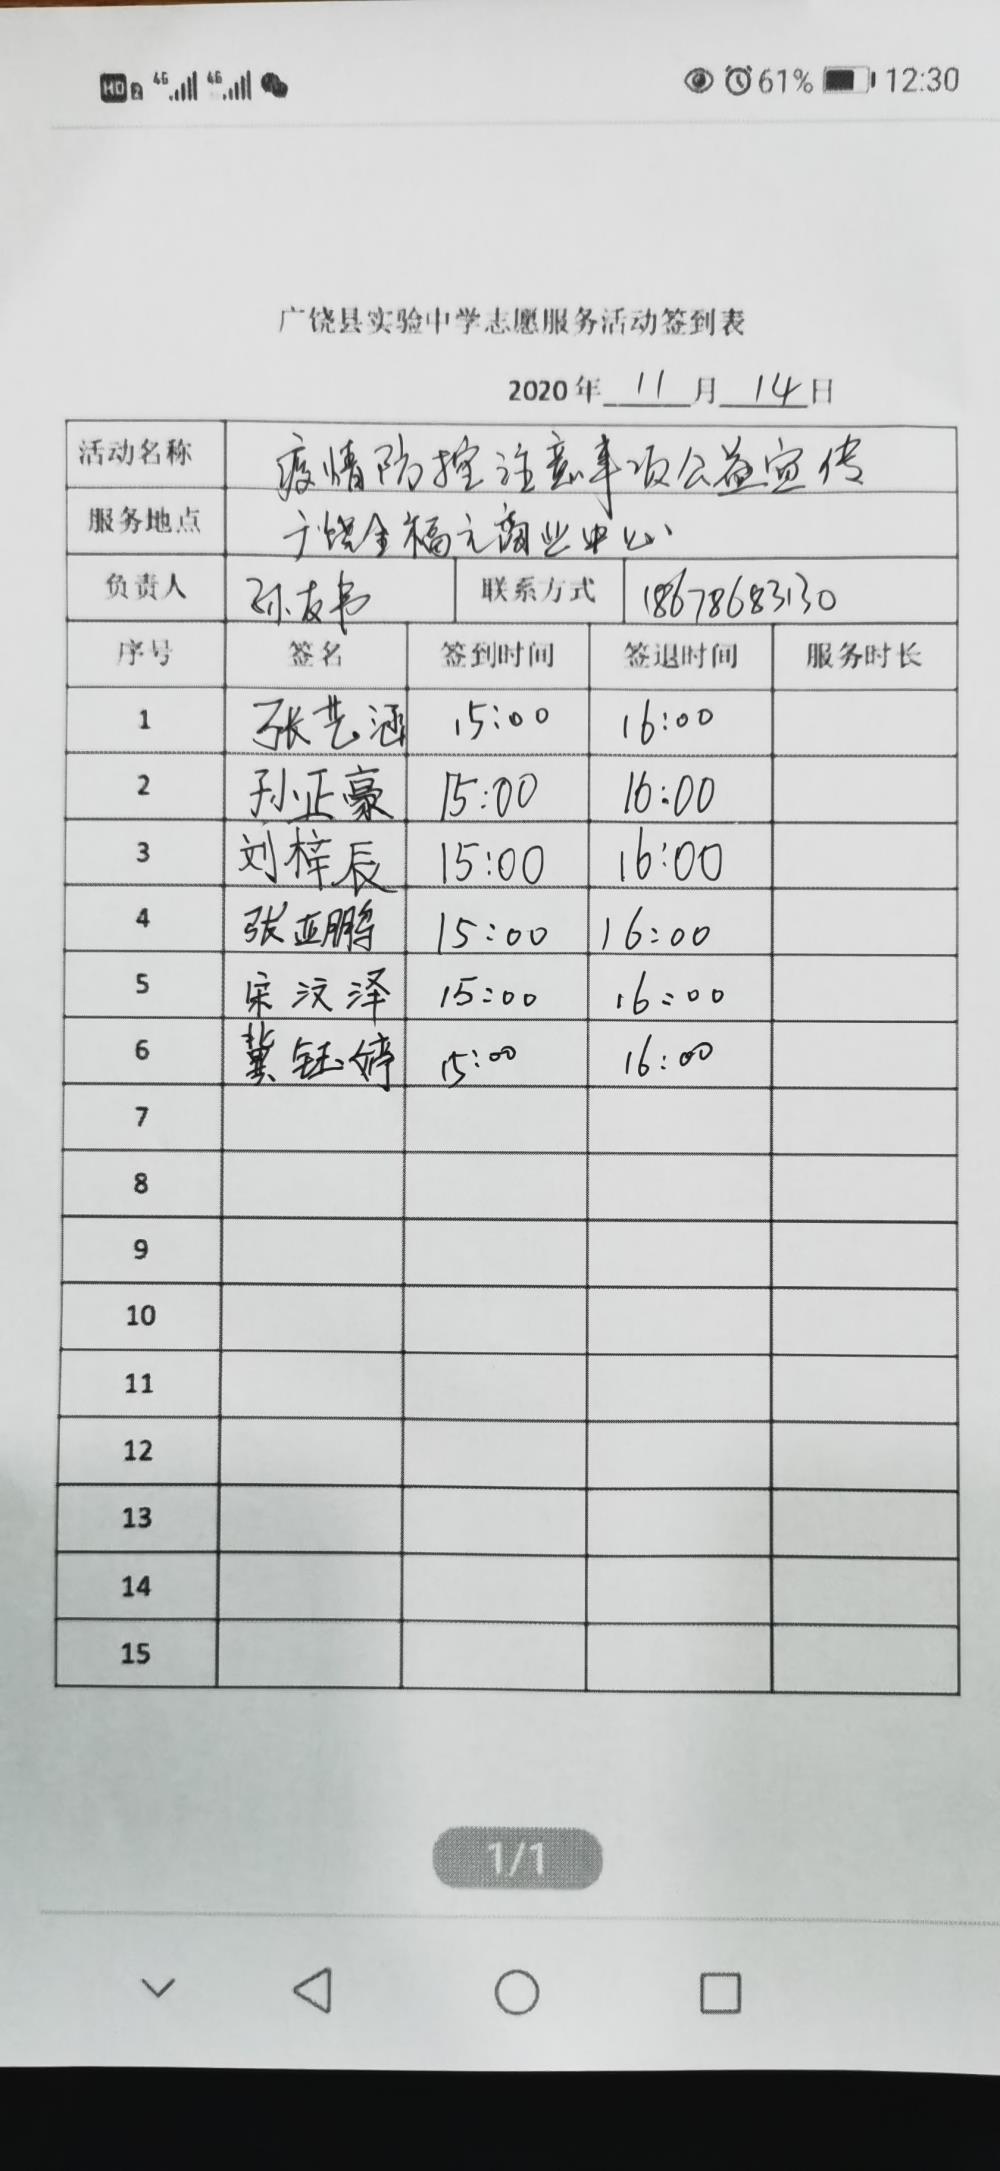 HD 2 4G 4G 61% 12:30
广饶县实验中学志愿服务活动签到表
2020年 11 月 14 日
活动名称 疫情防控注意事项公益宣传
服务地点 广饶全福元商业中心
负责人 孙友书 联系方式 18678683130
序号 签名 签到时间 签退时间 服务时长
1 张艺涵 15:00 16:00
2 孙正豪 15:00 16:00
3 刘梓辰 15:00 16:00
4 张亚鹏 15:00 16:00
5 宋汶泽 15:00 16:00
6 冀钰婷 15:00 16:00
7
8
9
10
11
12
13
14
15
1/1